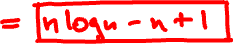 = n log n - n + 1